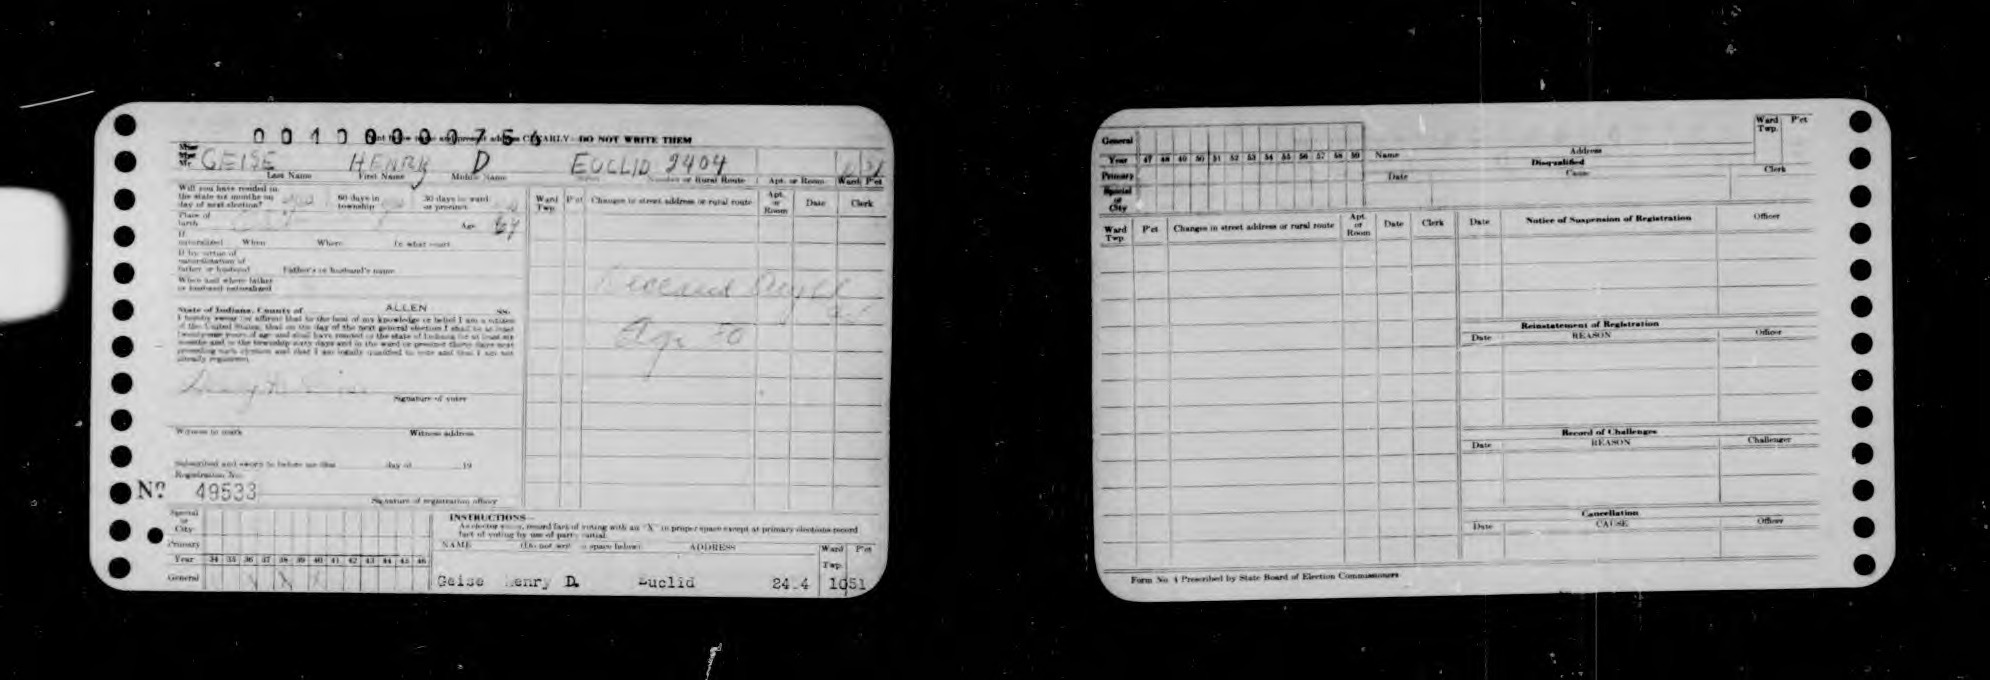 00400000754
CLEARLY - DO NOT WRITE THEM
Mr. GEISE HENRY D EUCLID 2404
Last Name First Name Middle Name Number or Rural Route Apt. or Room Ward P'ct
Will you have resided in the state six months on day of next election? 60 days in township 30 days in ward or precinct
Place of birth Age
If naturalized When Where In what court
If by virtue of naturalization of father or husband Father's or husband's name
When and where father or husband naturalized
State of Indiana, County of ALLEN SS.
I hereby swear (or affirm) that to the best of my knowledge or belief I am a citizen
of the United States, that on the day of the next general election I shall be at least
twenty-one years of age and shall have resided in the state of Indiana for at least six
months and in the township sixty days and in the ward or precinct thirty days next
preceding such election and that I am legally qualified to vote and that I am not
already registered.
Signature of voter
Witness to mark Witness address
Subscribed and sworn to before me this day of 19
Registration No.
No. 49533
Signature of registration officer
Ward Twp. P'ct Changes in street address or rural route Apt. or Room Date Clerk
Deceased
Age 50
Special or City
Primary
Year 34 35 36 37 38 39 40 41 42 43 44 45 46
General X X X
INSTRUCTIONS—
As elector votes, record fact of voting with an "X" in proper space except at primary elections record
fact of voting by use of party initial
NAME (Do not write in space below) ADDRESS Ward Twp. P'ct
Geise enry D. uclid 24 4 1051
General
Year 47 48 49 50 51 52 53 54 55 56 57 58 59
Primary
Special or City
Name Address Ward Twp. P'ct
Disqualified
Date Cause Clerk
Ward Twp. P'ct Changes in street address or rural route Apt. or Room Date Clerk
Date Notice of Suspension of Registration Officer
Reinstatement of Registration
Date REASON Officer
Record of Challenges
Date REASON Challenger
Cancellation
Date CAUSE Officer
Form No. 4 Prescribed by State Board of Election Commissioners